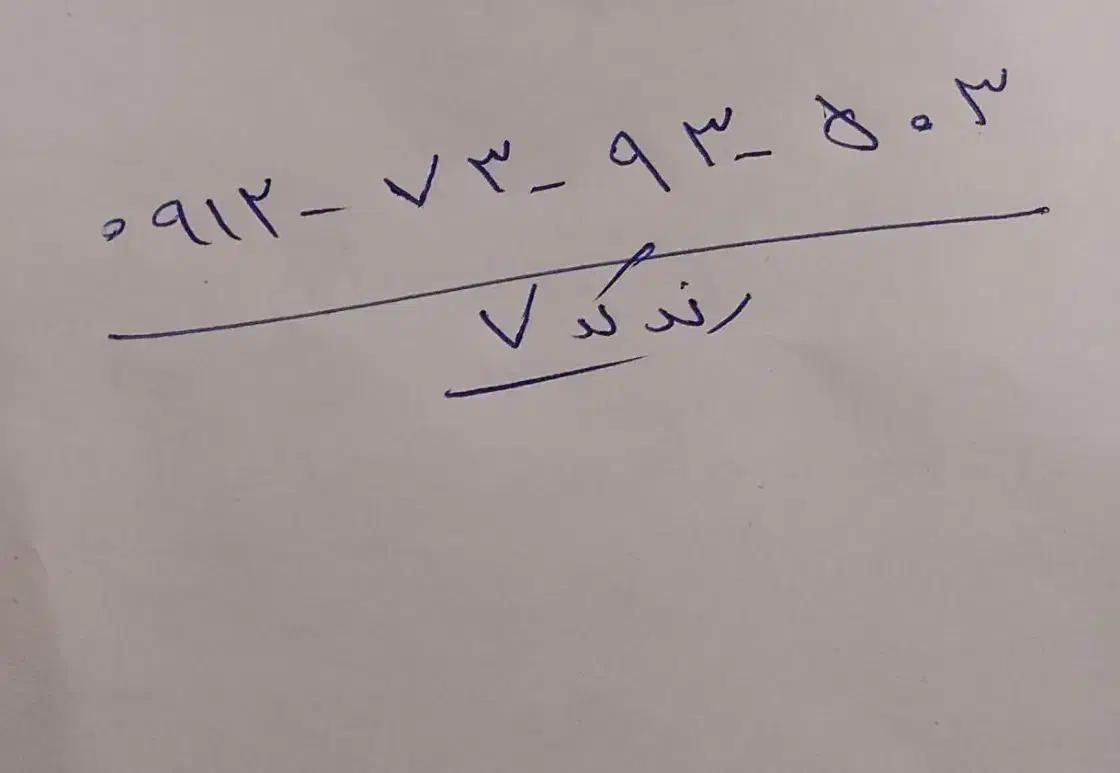 ۰۹۱۲-۷۳-۹۳-۵۰۳
رند کد ۷